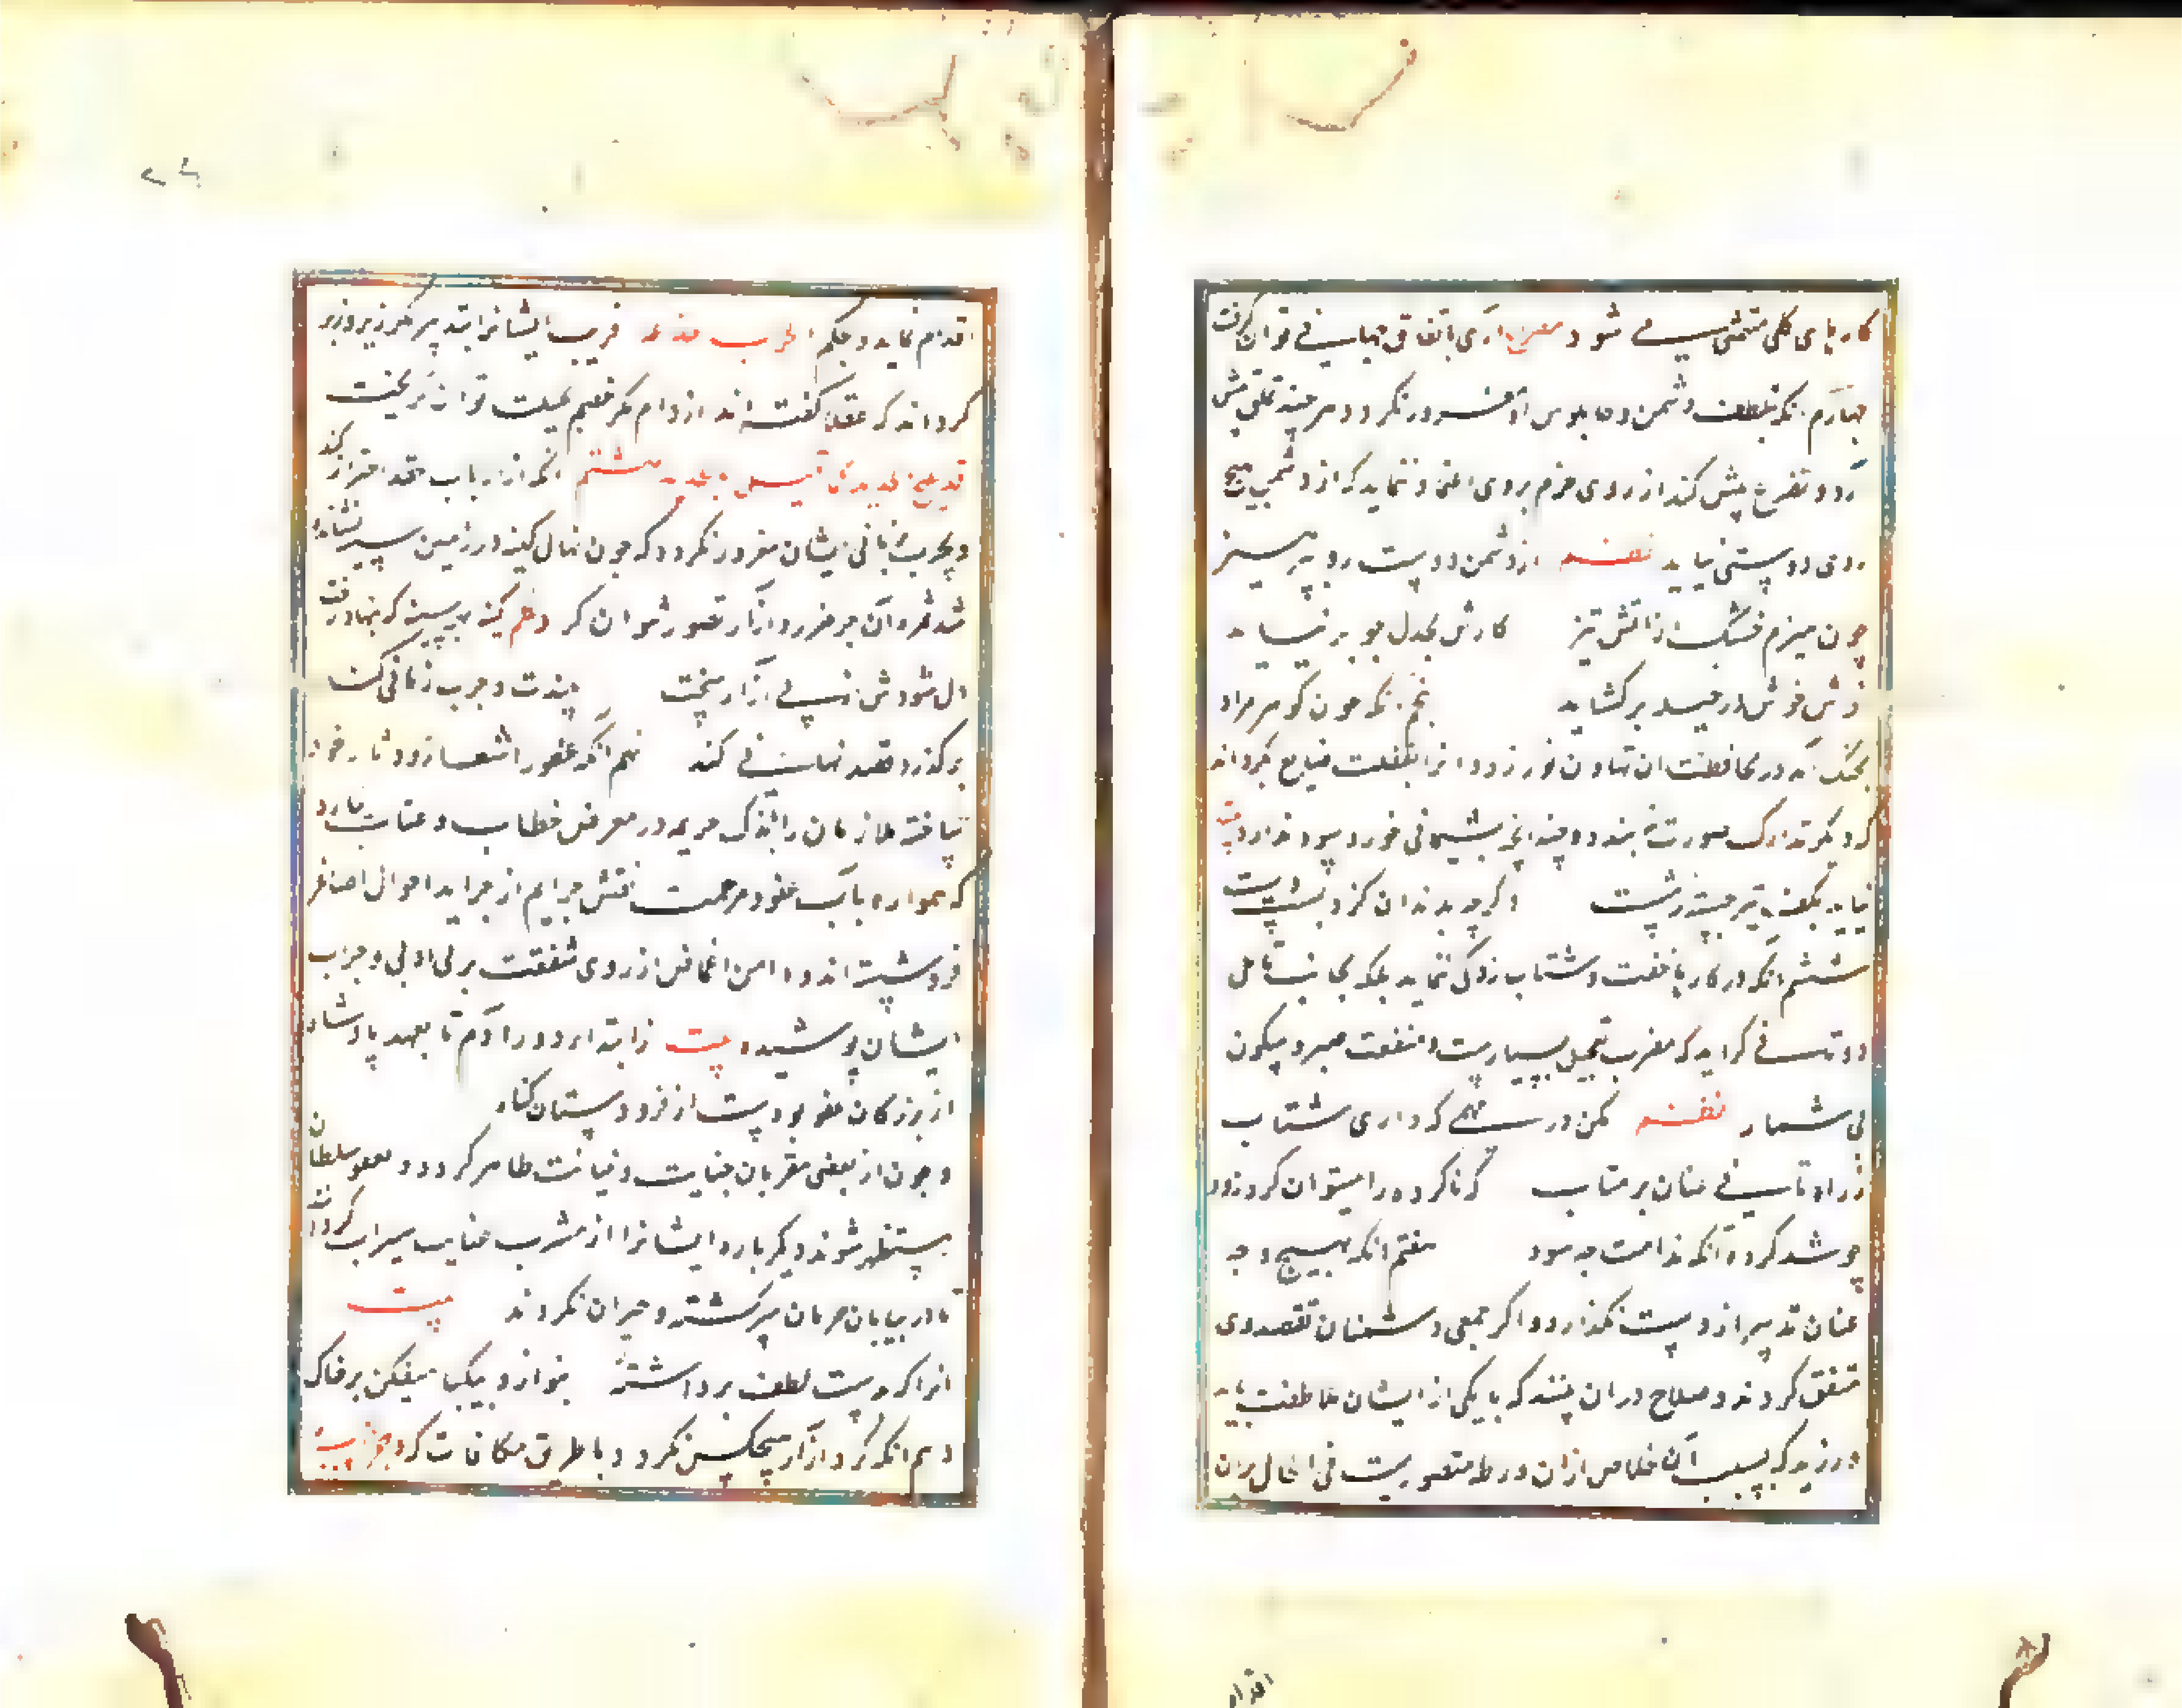 کارهای کلی متمشی می شود مصرع آری باتفاق جهان می توان گرفت
چهارم آنکه بتلطف دشمن و چاپلوسی او مغرور نگردد هر چند تملق پیش
آرد و تضرع پیش کند از روی حزم بروی اعتماد ننماید که از دشمن هیچ
روی دوستی نیاید نظم از دشمن دوست رو بپرهیز
چون هیزم خشک از آتش تیز کارش بجدل چو بر نیاید
در حیله بر گشاید پنجم آنکه چون گوهر مراد
بچنگ آمد در محافظت ان تهاون نورزد و انرا بغفلت ضایع نکرداند
که دیگر تدارک صورت نبندد و چندانچه پشیمانی خورد سود ندارد بیت
نیاید بکف تیر جسته ز شست اگر چه بدندان گزد پشت دست
ششم آنکه در کارها خفت و شتاب زدگی ننماید بلکه بجانب تامل
و تانی گراید که مضرت تعجیل بسیارست و منفعت صبر و سکون
بی شمار نظم مکن در مهمی که داری شتاب
ز راه تانی عنان بر متاب که ناکرده را میتوان کرد زود
چو شد کرده آنکه ندامت چه سود هفتم آنکه بهیچ وجه
عنان تدبیر از دست نگذارد و اگر جمعی دشمنان بقصد وی
متفق گردند و صلاح در ان بیند که با یکی از ایشان ملاطفت باید
ورزید که بسبب آن خلاص ازان ورطه متصورست فی الحال بران
اقدام
اقدام نماید و بحکم الحرب خدعة فریب ایشانرا بتدبیر مکر زیر و زبر
کرداند که عقلا گفته اند از دام مکر خصم بحیلت توان گریخت
هشتم آنکه از ارباب حقد احتراز کند
و بچرب زبانی ایشان مغرور نگردد که چون نهال کینه در زمین سینه نشانده
شد ثمره آن جز ضرر و آزار تصور نتوان کرد
پیشت و چرب زبانی کند
بر گذرد قصد نهانی کند نهم آنکه عفو را شعار و دثار خود
ساخته ملازمان را باندک جریمه در معرض خطاب و عتاب نیارد
که همواره بآب عفو و مرحمت نقش جرایم از جراید احوال اصاغر
فروشسته اند و دامن اغماض از روی شفقت بر بی ادبی و جرات
ایشان پوشیده بیت ز ابتداء دور آدم تا بعهد پادشاه
از بزرگان عفو بودست از فرودستان گناه
و چون از بعضی مقربان جنایت و خیانت ظاهر گردد و بعفو سلطان
مستظهر شوند دیگر باره ایشانرا از مشرب عنایت سیراب کرداند
تا در بیابان حرمان سرگشته و حیران نگردند بیت
انرا که بدست لطف برداشته بنواز و بیکبار میفکن بر خاک
دهم آنکه گرد آزار هیچکس نگردد تا بطریق مکافات